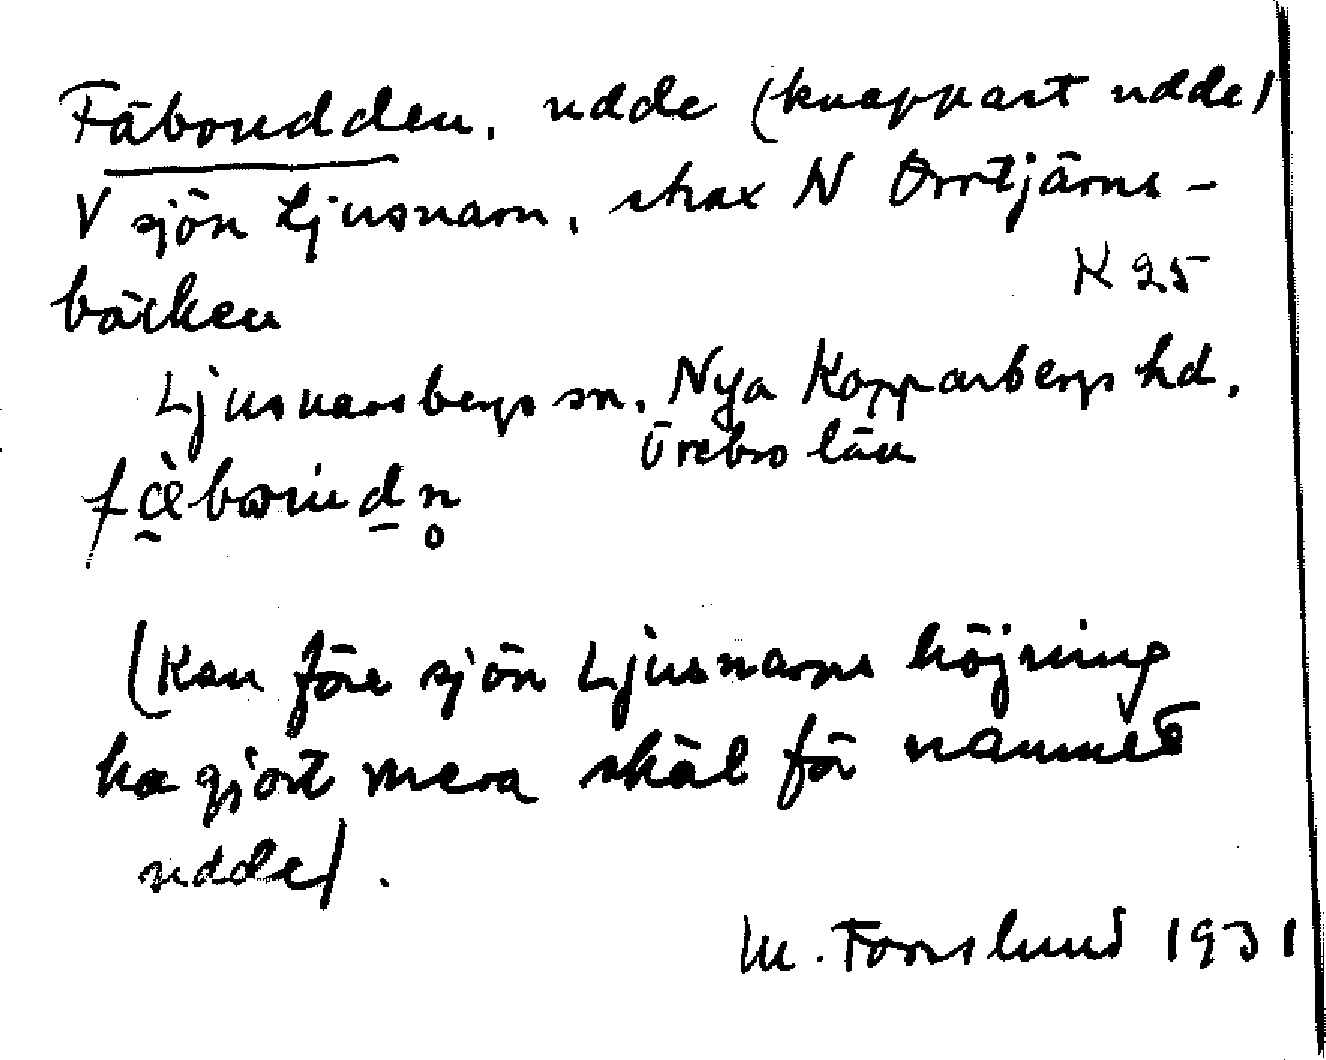 Fäboudden, udde (knappast udde)
V sjön Ljusnarn, strax N Orrtjärns-
bäcken
K 25
Ljusnarsbergs sn, Nya Kopparbergs hd,
Örebro län
(Kan före sjön Ljusnarns höjning
ha gjort mera skäl för namnet
udde).
M. Forslund 1931